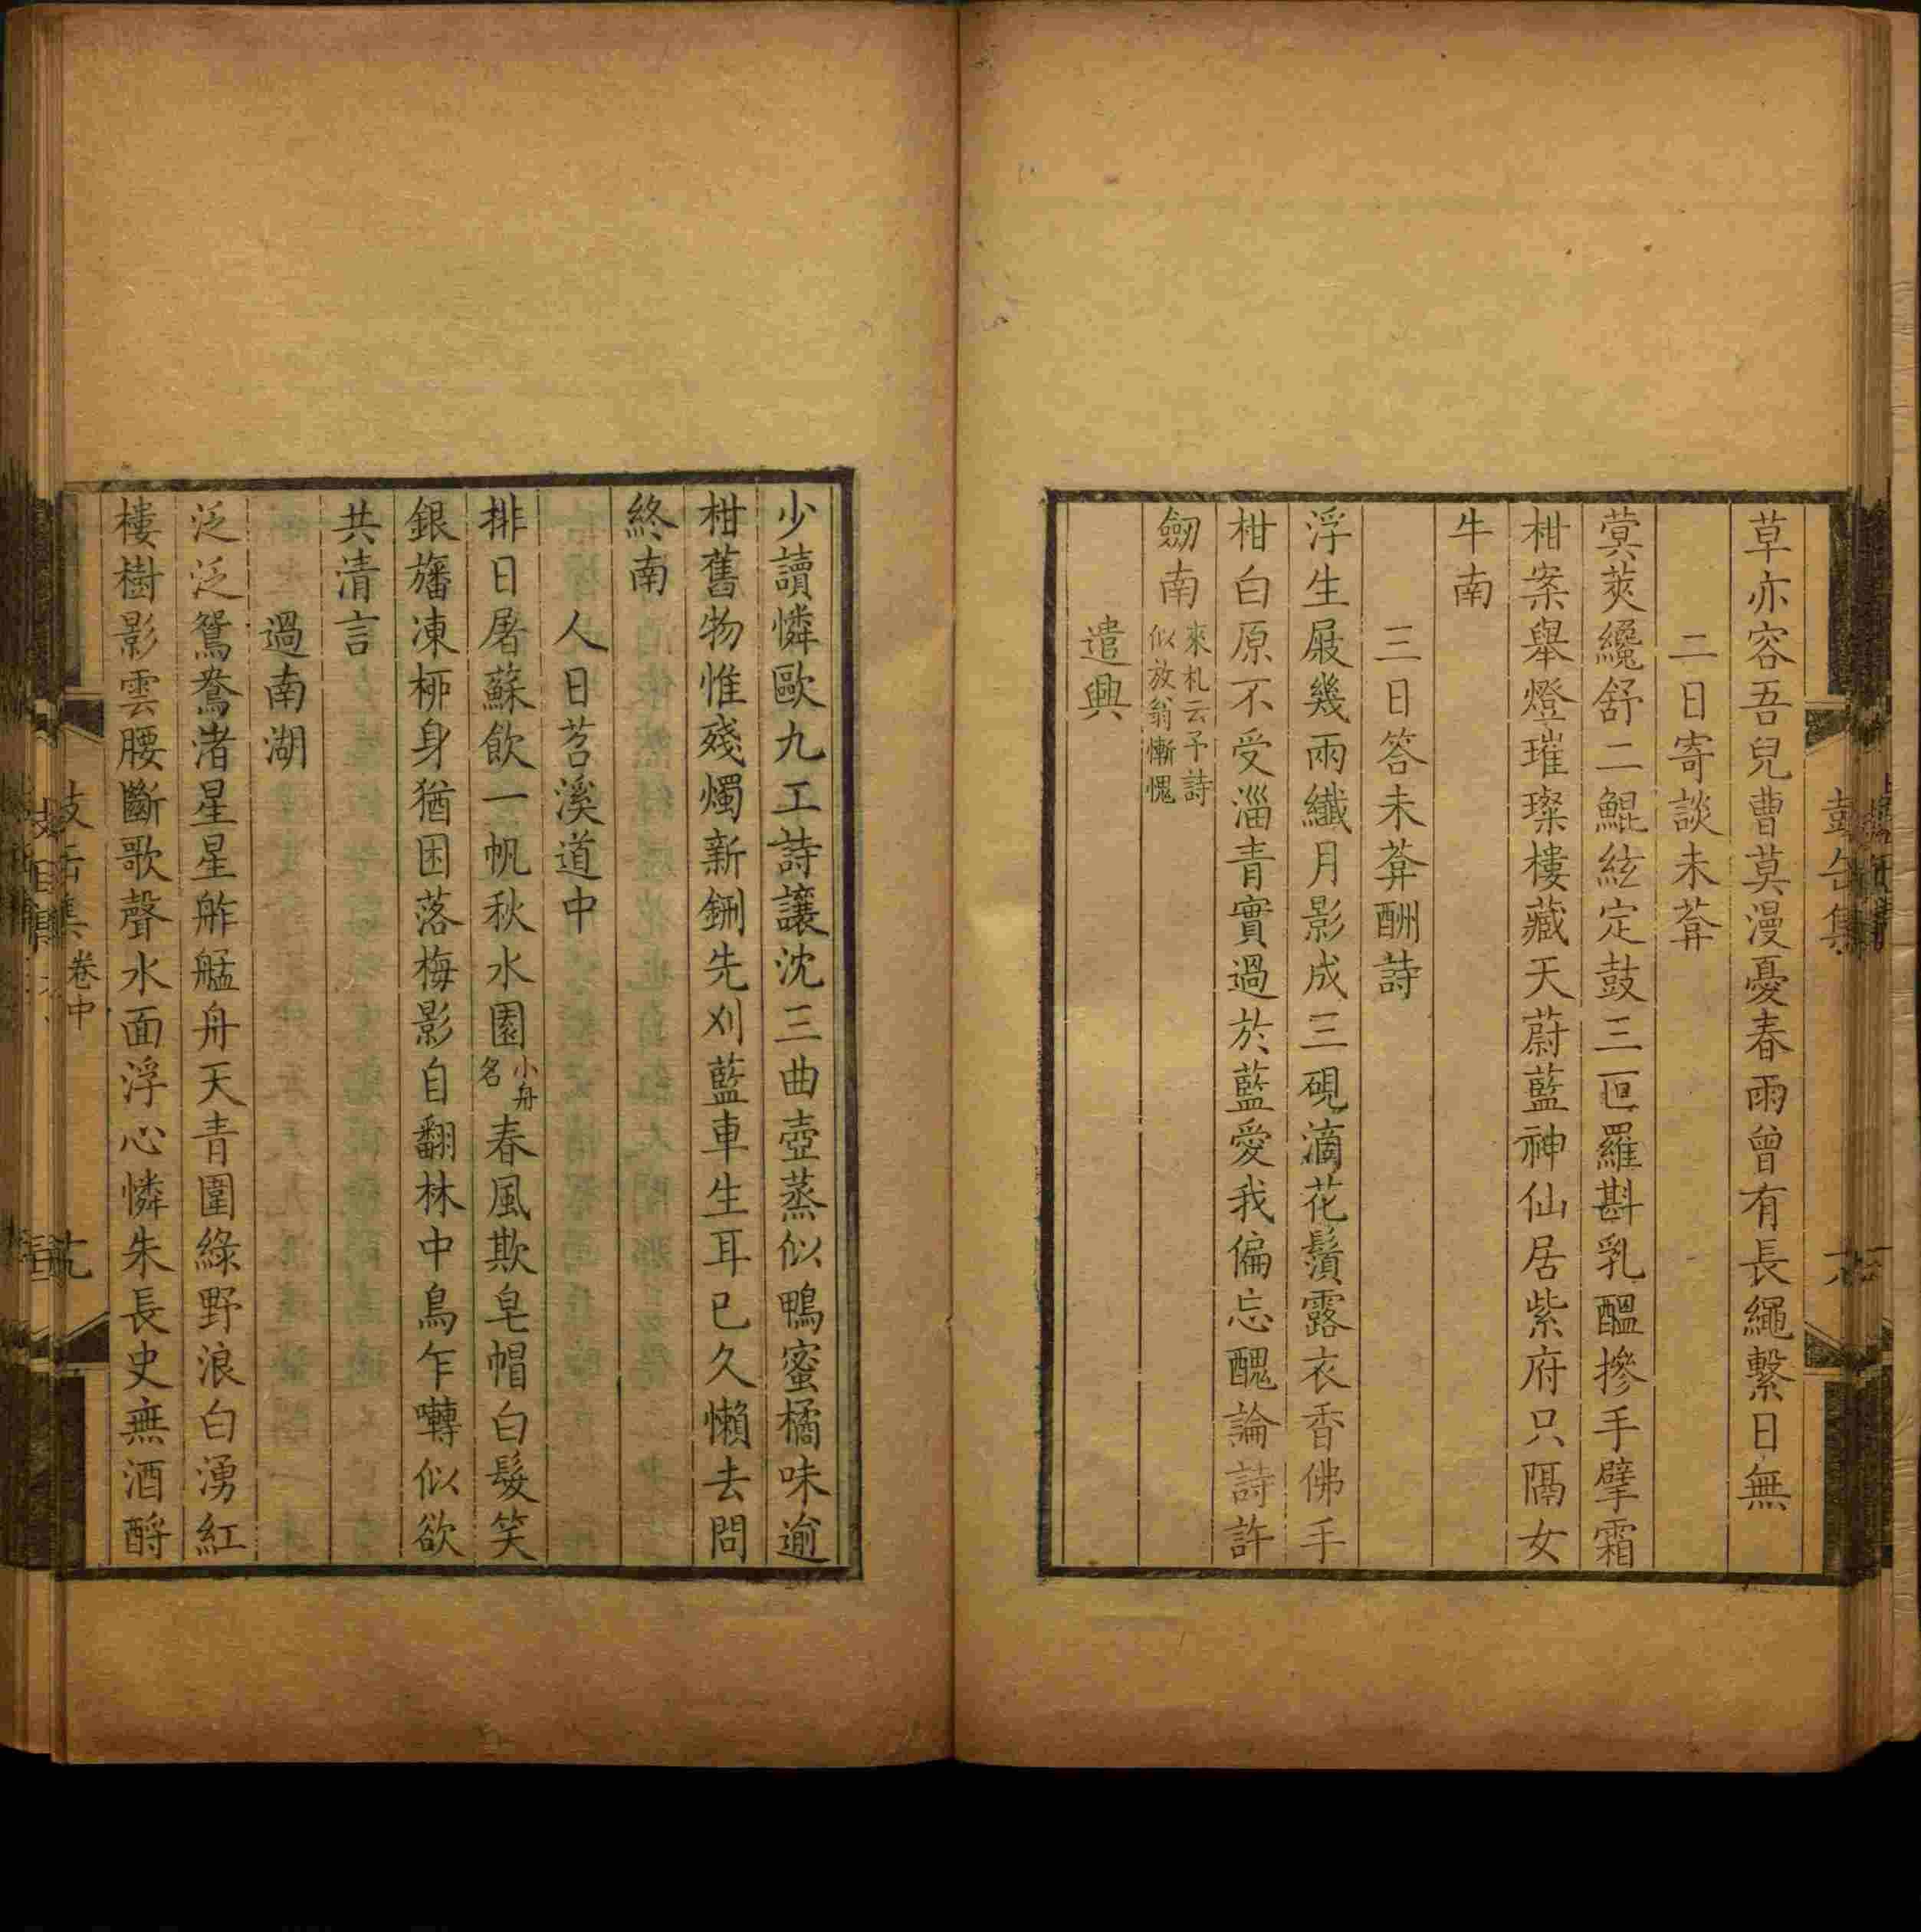 草亦容吾兒曹莫漫憂春雨曾有長繩繫日無
二日寄談未葊
蓂莢纔舒二鯤絃定鼓三叵羅斟乳醖摻手擘霜
柑案舉燈璀璨樓藏天蔚藍神仙居紫府只隔女
牛南
三日答未葊酬詩
浮生屐幾兩纖月影成三硯滴花鬚露衣香佛手
柑白原不受淄青實過於藍愛我偏忘醜論詩許
劒南來札云予詩
似放翁慚愧
遣興
少讀憐歐九工詩讓沈三曲壺蒸似鴨蜜橘味逾
柑舊物惟殘燭新鉶先刈藍車生耳已久懶去問
終南
人日苕溪道中
排日屠蘇飲一帆秋水園小舟
名春風欺皂帽白髮笑
銀旛凍桺身猶困落梅影自翻林中鳥乍囀似欲
共清言
過南湖
泛泛鴛鴦渚星星舴艋舟天青圍綠野浪白湧紅
樓樹影雲腰斷歌聲水面浮心憐朱長史無酒酹
卷中